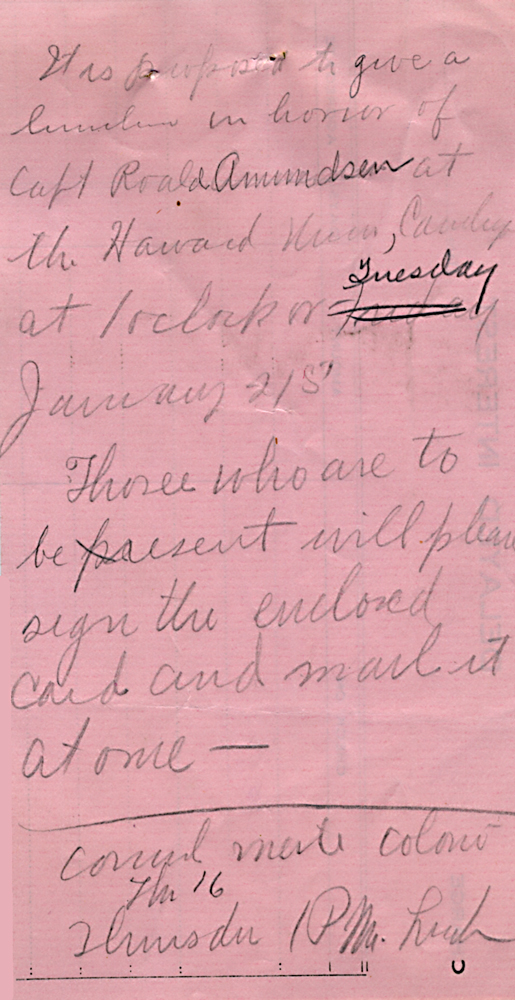 It is proposed to give a
lunch in honor of
Capt Roald Amundsen at
the Harvard Union, Camby
at 1 oclock on Tuesday
January 21st
Those who are to
be present will please
sign the enclosed
card and mail it
at once —
Consul
Thu '16
1 P.M. Lunch